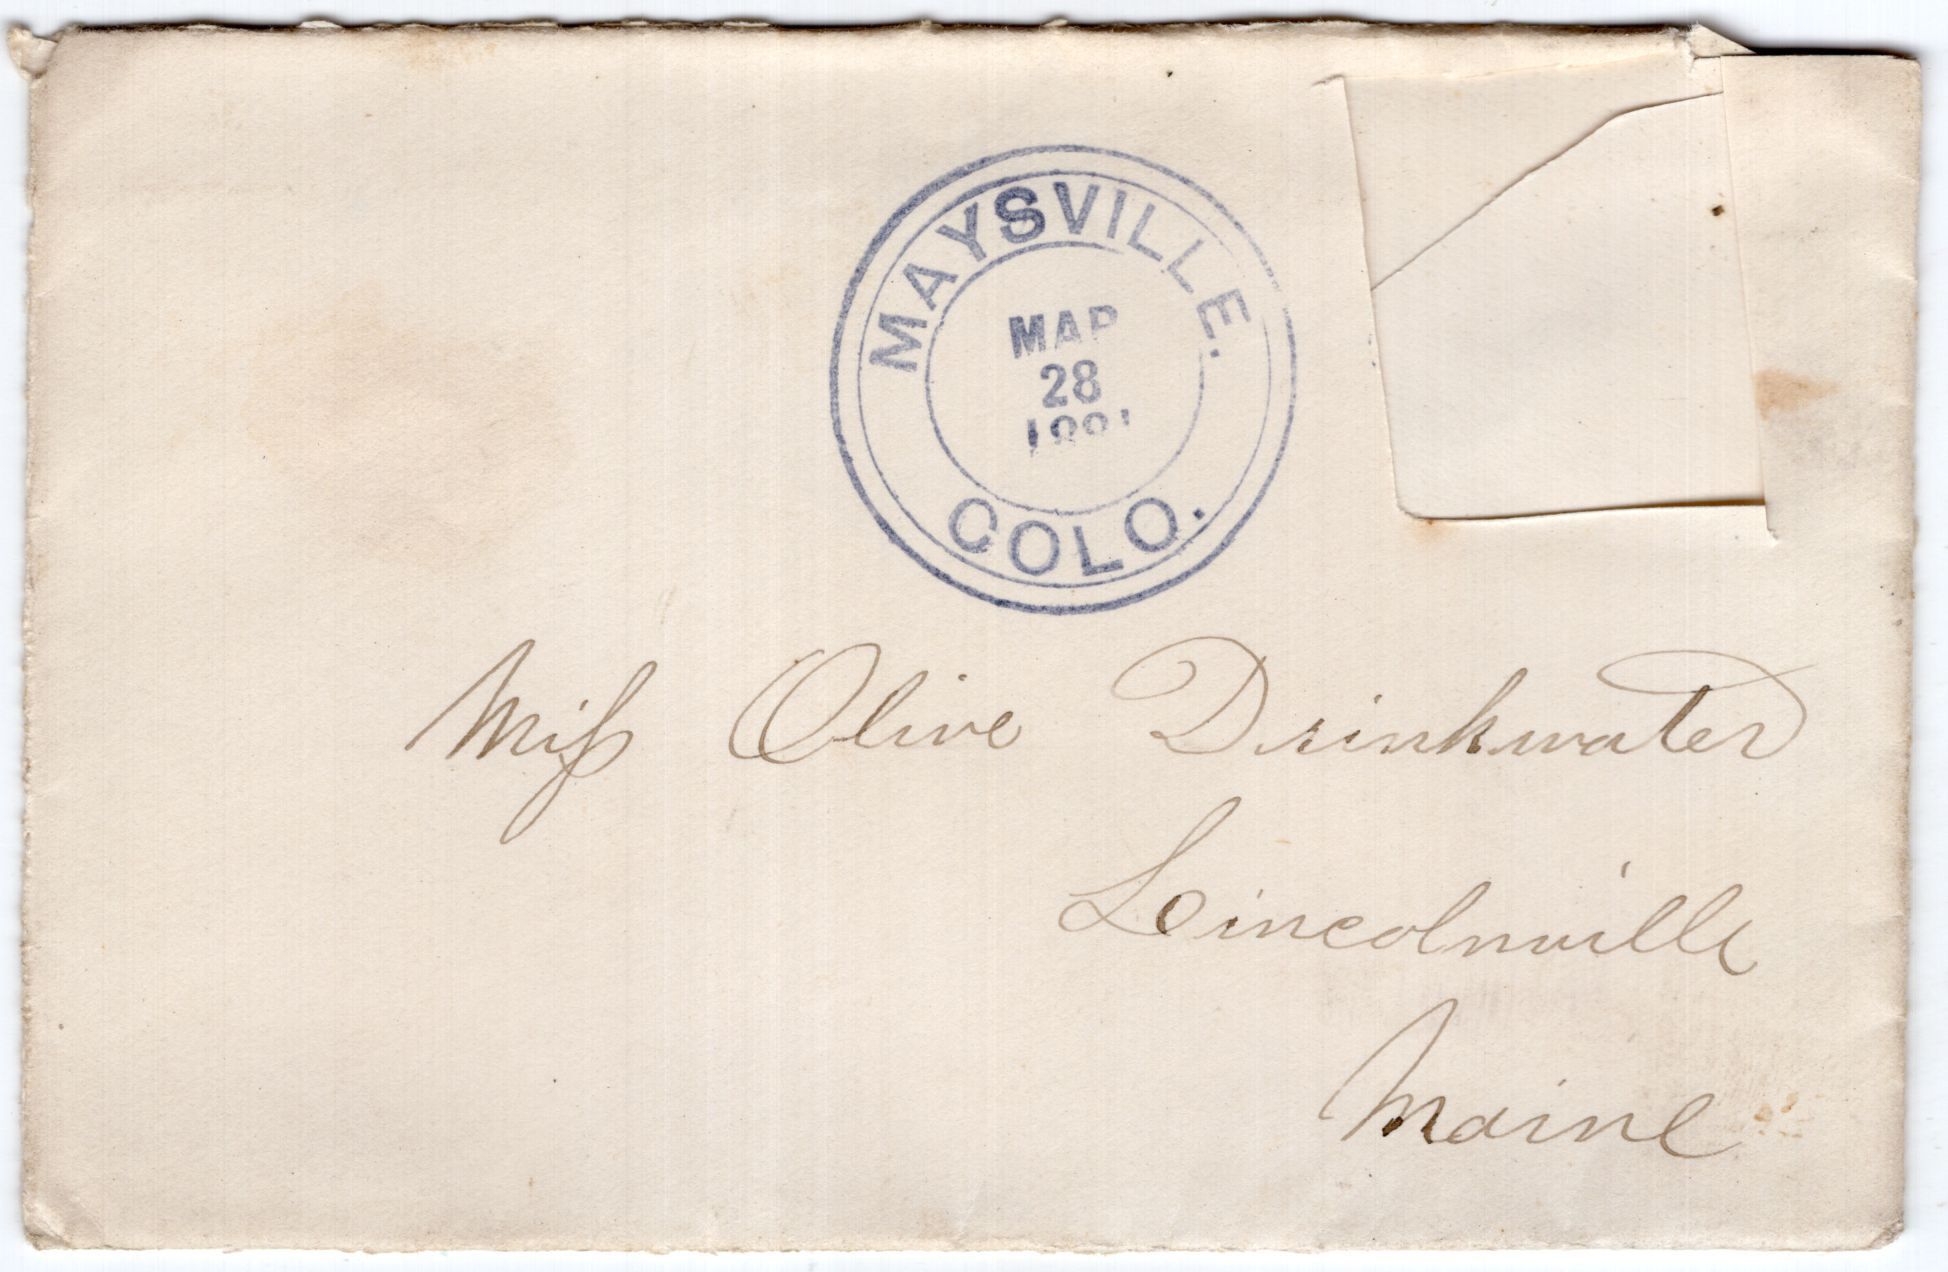 MAYSVILLE.
MAR
28
COLO.
Miss Olive Drinkwater
Lincolnville
Maine